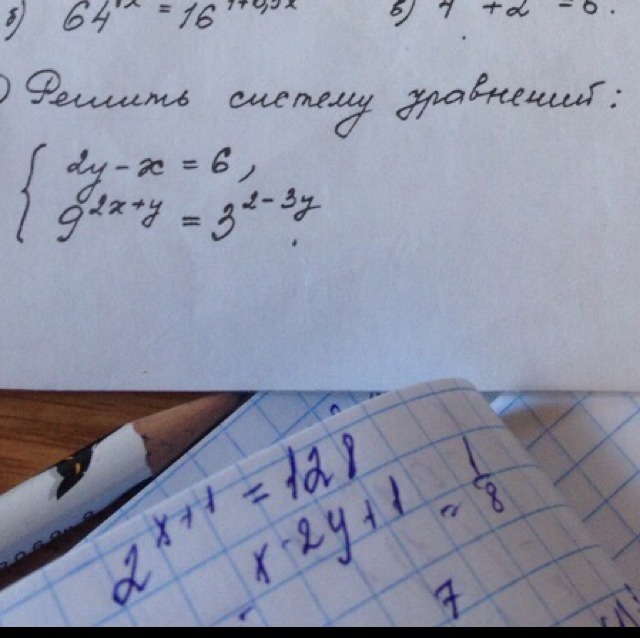 б) 64 = 16
в) 4 + 2 = 6.
) Решить систему уравнений:
2y - x = 6,
9^2x+y = 3^2-3y.
2^x+1 = 128
x-2y+1 = 1/8
7